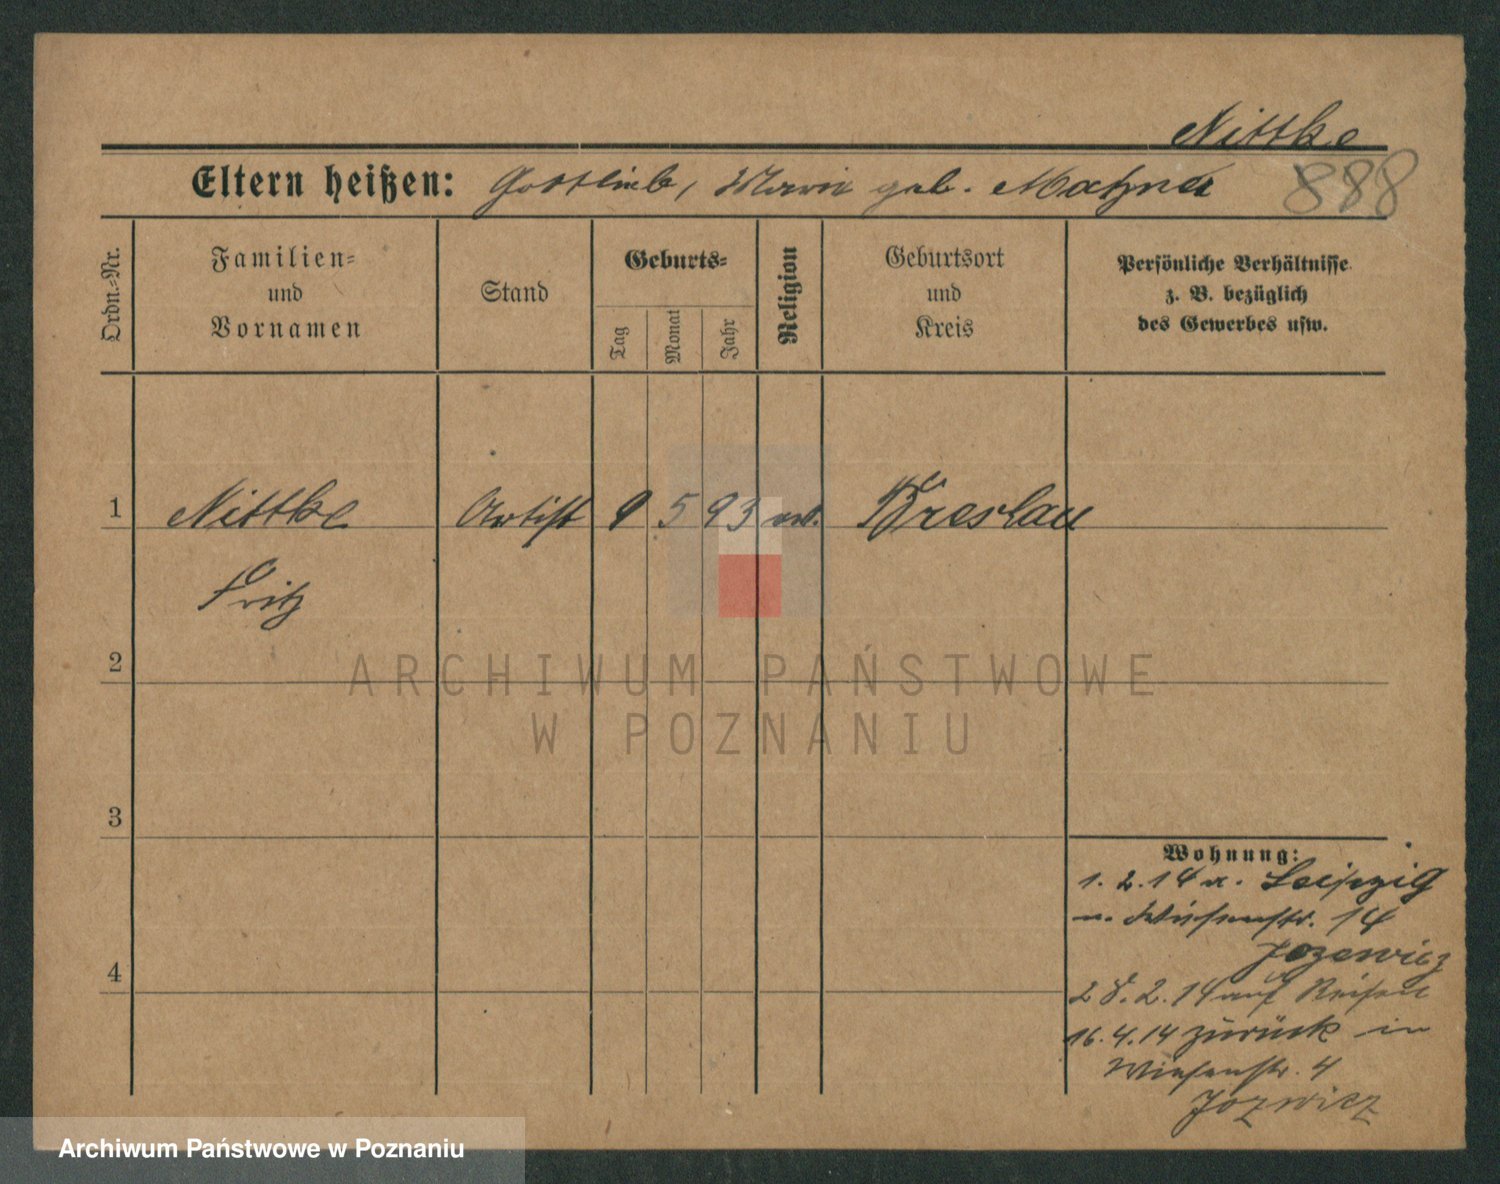 Nittke
Eltern heißen: Gottlieb, Marie geb.
888
Ordn.-Nr.
Familien- und Vornamen
Stand
Geburts-
Tag
Monat
Jahr
Religion
Geburtsort und Kreis
Persönliche Verhältnisse
z. B. bezüglich
des Gewerbes usw.
1 Nittke Artist 9 5 93 Breslau
Fritz
2
ARCHIWUM PAŃSTWOWE
W POZNANIU
3
Wohnung:
1. 2. 14 a. Leipzig
n. Wiesenstr. 14
Jozewicz
4
28. 2. 14 auf Reisen
16. 4. 14 zurück in
Wiesenstr. 4
Jozwicz
Archiwum Państwowe w Poznaniu